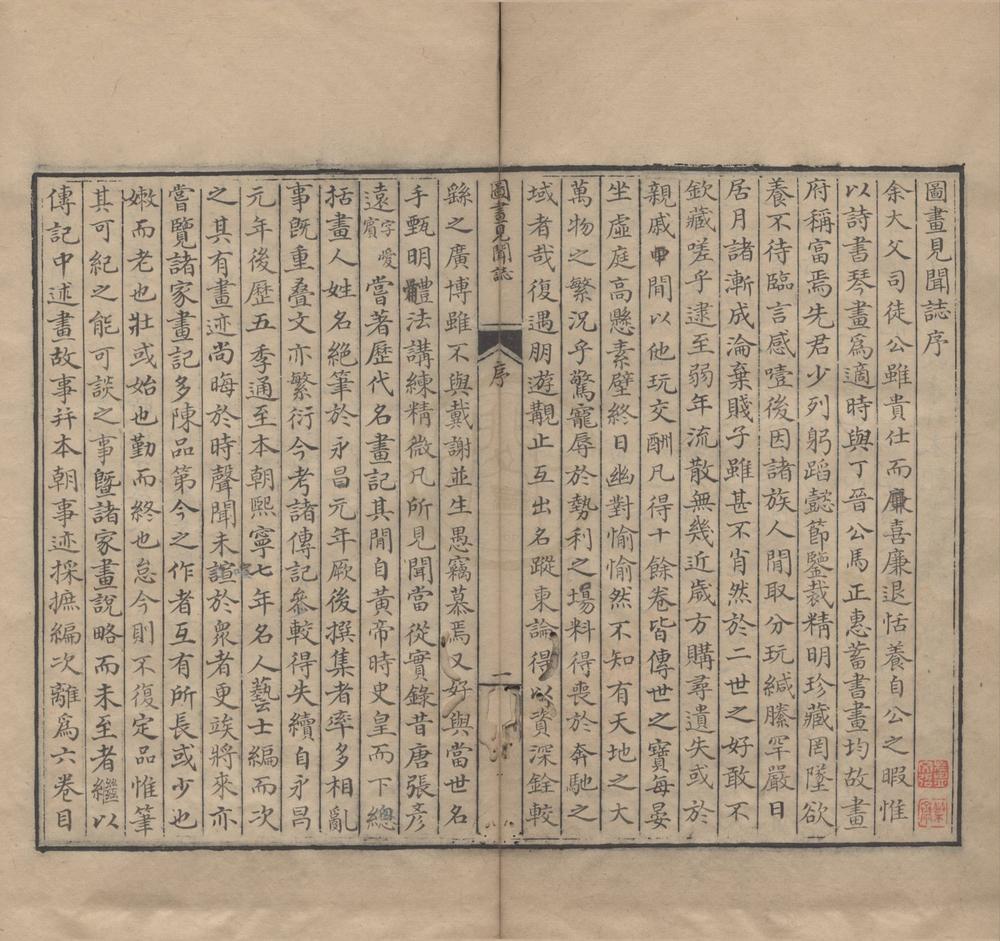 圖畫見聞誌序
余大父司徒公雖貴仕而廉喜廉退恬養自公之暇惟
以詩書琴畫爲適時與丁晉公馬正惠蓄書畫均故畫
府稱富焉先君少列躬蹈懿節鑒裁精明珍藏罔墜欲
養不待臨言感噎後因諸族人間取分玩緘縢罕嚴日
居月諸漸成淪棄賤子雖甚不肖然於二世之好敢不
欽藏嗟乎逮至弱年流散無幾近歲方購尋遺失或於
親戚中間以他玩交酬凡得十餘卷皆傳世之寶每宴
坐虛庭高懸素壁終日幽對愉愉然不知有天地之大
萬物之繁況乎驚寵辱於勢利之場料得喪於奔馳之
域者哉復遇朋遊覯止互出名蹤柬論得以資深銓較
圖畫見聞誌 序 一
繇之廣博雖不與戴謝並生愚竊慕焉又好與當世名
手甄明體法講練精微凡所見聞當從實錄昔唐張彥
遠字愛賓嘗著歷代名畫記其間自黃帝時史皇而下總
括畫人姓名絕筆於永昌元年厥後撰集者率多相亂
事旣重疊文亦繁衍今考諸傳記參較得失續自永昌
元年後歷五季通至本朝熙寧七年名人藝士編而次
之其有畫迹尚晦於時聲聞未諠於衆者更竢將來亦
嘗覽諸家畫記多陳品第今之作者互有所長或少也
嫩而老也壯或始也勤而終也怠今則不復定品惟筆
其可紀之能可談之事曁諸家畫說略而未至者繼以
傳記中述畫故事幷本朝事迹採摭編次離爲六卷目